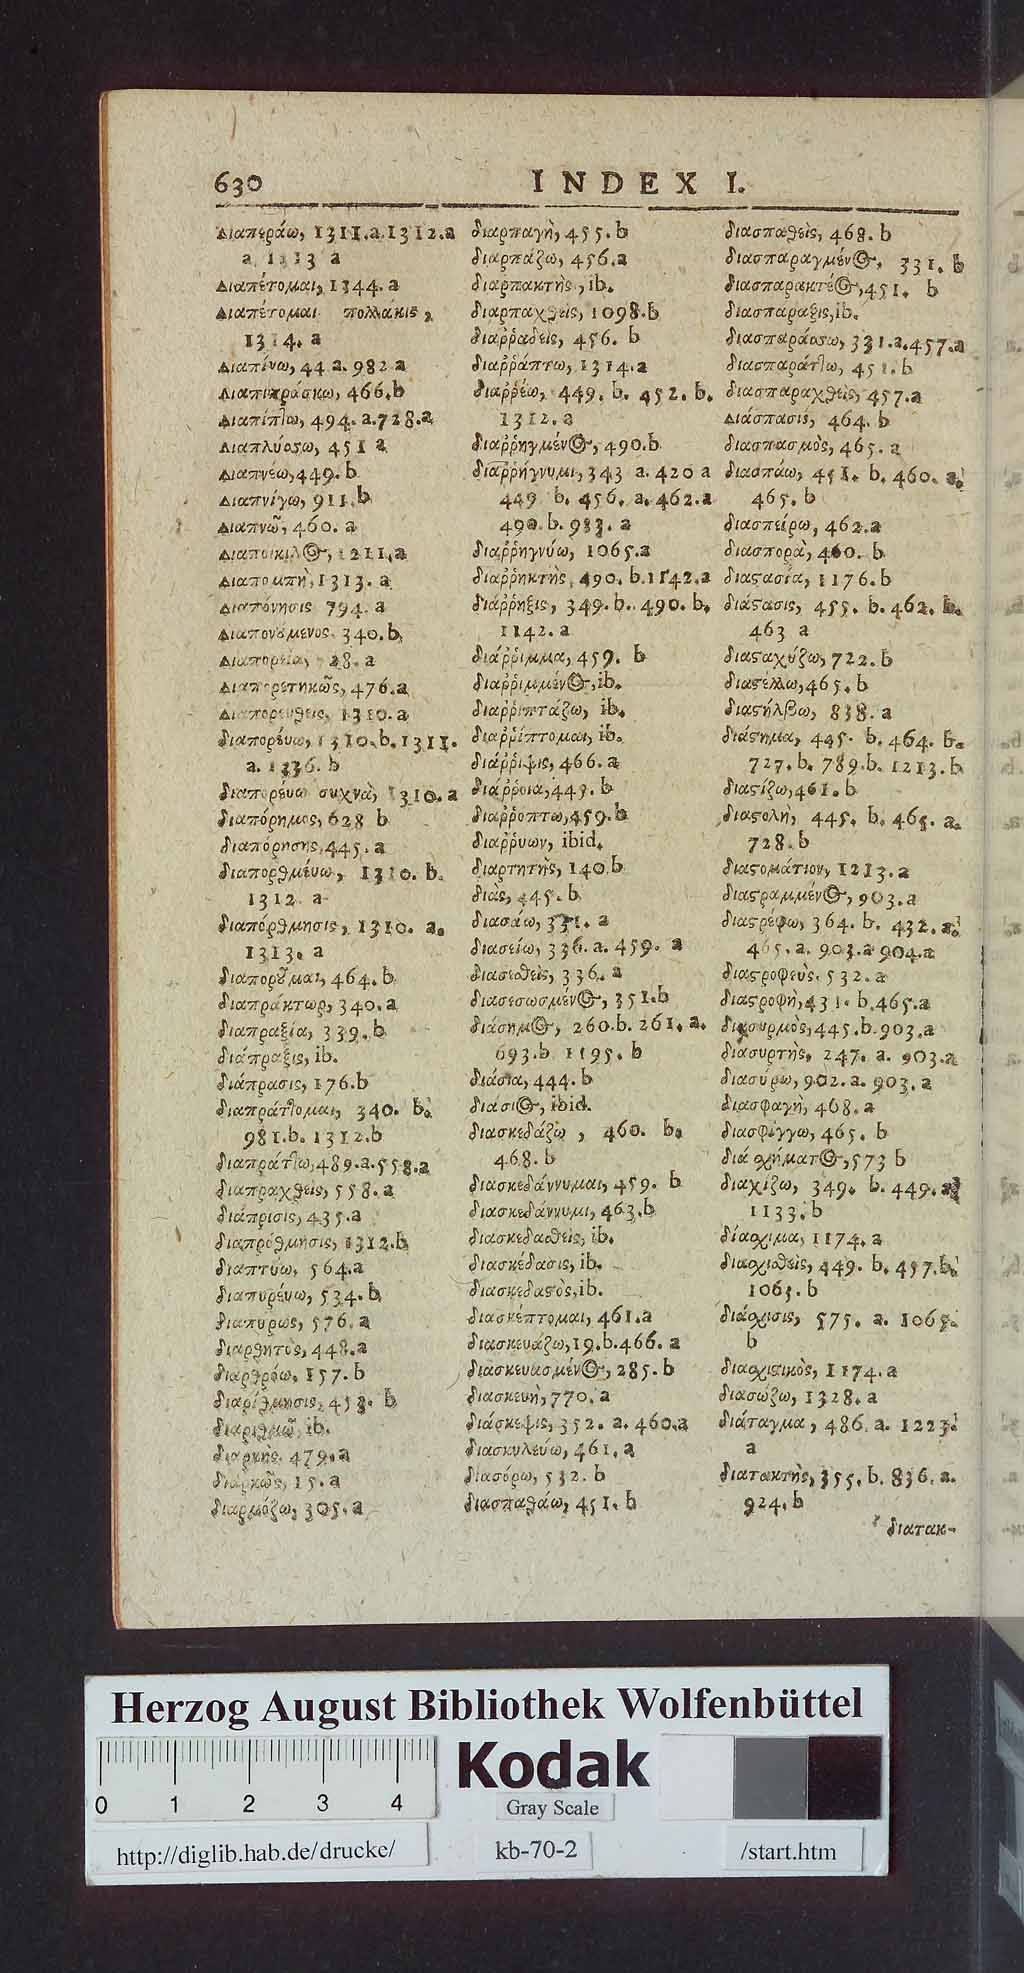 630 INDEX I.
διαπεράω, 1311.a.1312.a
a 1313 a
διαπέτομαι, 1344.a
διαπέτομαι πολλάκις,
1314.a
διαπίνω, 44 a. 982 a
διαπιπράσκω, 466.b
διαπίπτω, 494.a.728.a
διαπλύσσω, 451 a
διαπνέω, 449.b
διαπνίγω, 911.b
διαπνῶ, 460.a
διαποίκιλος, 1211.a
διαπομπὴ, 1313. a
διαπόνησις 794.a
διαπονούμενος. 340.b.
διαπορεία, 28.a
διαπορετηκῶς, 476.a
διαπορευθεὶς, 1310.a
διαπορεύω, 1310.b.1311.
a. 1336. b
διαπορεύω συχνὰ, 1310.a
διαπόρημος, 628 b
διαπόρησης, 445.a
διαπορθμεύω, 1310. b.
1312 a
διαπόρθμησις, 1310. a.
1313. a
διαποροῦμαι, 464.b
διαπράκτωρ, 340.a
διαπραξία, 339.b
διάπραξις, ib.
διάπρασις, 176.b
διαπράττομαι, 340. b.
981.b. 1312.b
διαπράττω, 489.a.558.a
διαπραχθεὶς, 558.a
διάπρισις, 435.a
διαπρόθμησις, 1312.b
διαπτύω, 564.a
διαπυρεύω, 534.b
διαπύρως, 576.a
διαρθητὸς, 448.a
διαρθρόω, 157.b
διαρίθμησις, 453. b
διαριθμῶ, ib.
διαρκὴς. 479.a
διαρκῶς, 15.a
διαρμόζω, 305.a
διαρπαγὴ, 455.b
διαρπάζω, 456.a
διαρπακτὴς, ib.
διαρπαχθεὶς, 1098.b
διαῤῥαδεὶς, 456. b
διαῤῥάπτω, 1314.a
διαῤῥέω, 449. b. 452. b.
1312.a
διαῤῥηγμένος, 490.b
διαῤῥήγνυμι, 343 a. 420 a
449 b. 456. a. 462.a
490.b. 983. a
διαῤῥηγνύω, 1065.a
διαῤῥηκτὴς, 490. b.1142.a
διάῤῥηξις, 349.b. 490.b.
1142.a
διάῤῥιμμα, 459. b
διαῤῥιμμένος, ib.
διαῤῥιπτάζω, ib.
διαῤῥίπτομαι, ib.
διάῤῥιψις, 466.a
διάῤῥοια, 443.b
διαῤῥοπτω, 459.b
διαῤῥυων, ibid.
διαρτητὴς, 140.b
διὰς, 445.b
διασάω, 331.a
διασείω, 336.a. 459. a
διασειθεὶς, 336. a
διασεσωσμένος, 351.b
διάσημος, 260.b. 261. a.
693.b 1195.b
διάσια, 444.b
διάσιος, ibid.
διασκεδάζω, 460. b.
468. b
διασκεδάννυμαι, 459. b
διασκεδάννυμι, 463.b
διασκεδασθεὶς, ib.
διασκέδασις, ib.
διασκεδαστὸς, ib.
διασκέπτομαι, 461.a
διασκευάζω, 19.b.466. a
διασκευασμένος, 285. b
διασκευὴ, 770. a
διάσκεψις, 352. a. 460.a
διασκυλεύω, 461. a
διασόρω, 532. b
διασπαθάω, 451. b
διασπαθεὶς, 468. b
διασπαραγμένος, 331. b
διασπαρακτέος, 451. b
διασπαραξις, ib.
διασπαράσσω, 331.a.457.a
διασπαράττω, 451. b
διασπαραχθεὶς, 457.a
διάσπασις, 464. b
διασπασμὸς, 465. a
διασπάω, 451. b. 460. a.
465. b
διασπείρω, 462.a
διασπορὰ, 460. b
διαστασία, 1176.b
διάστασις, 455. b. 462. b.
463 a
διασταχύζω, 722.b
διαστέλλω, 465.b
διαστήλβω, 838. a
διάστημα, 445. b. 464. b.
727.b. 789.b. 1213.b
διαστίζω, 461.b
διαστολὴ, 445. b. 465. a.
728.b
διαστομάτιον, 1213.a
διαστραμμένος, 903.a
διαστρέφω, 364. b. 432. a.
465.a. 903.a 904.a
διαστροφεὺς. 532.a
διαστροφὴ, 431. b.465.a
διασυρμὸς, 445.b.903.a
διασυρτὴς, 247. a. 903.a
διασύρω, 902.a. 903. a
διασφαγὴ, 468.a
διασφίγγω, 465. b
διά σχήματος, 573 b
διαχίζω, 349. b. 449. a
1133.b
δίασχιμα, 1174.a
διασχισθεὶς, 449. b. 457.b.
1063.b
διάσχισις, 575. a. 1065.
b
διασχιστικὸς, 1174.a
διασώζω, 1328.a
διάταγμα, 486.a. 1223.
a
διατακτὴς, 355.b. 836.a.
924.b
διατακ-
Herzog August Bibliothek Wolfenbüttel
Kodak
Gray Scale
0 1 2 3 4
http://diglib.hab.de/drucke/ kb-70-2 /start.htm